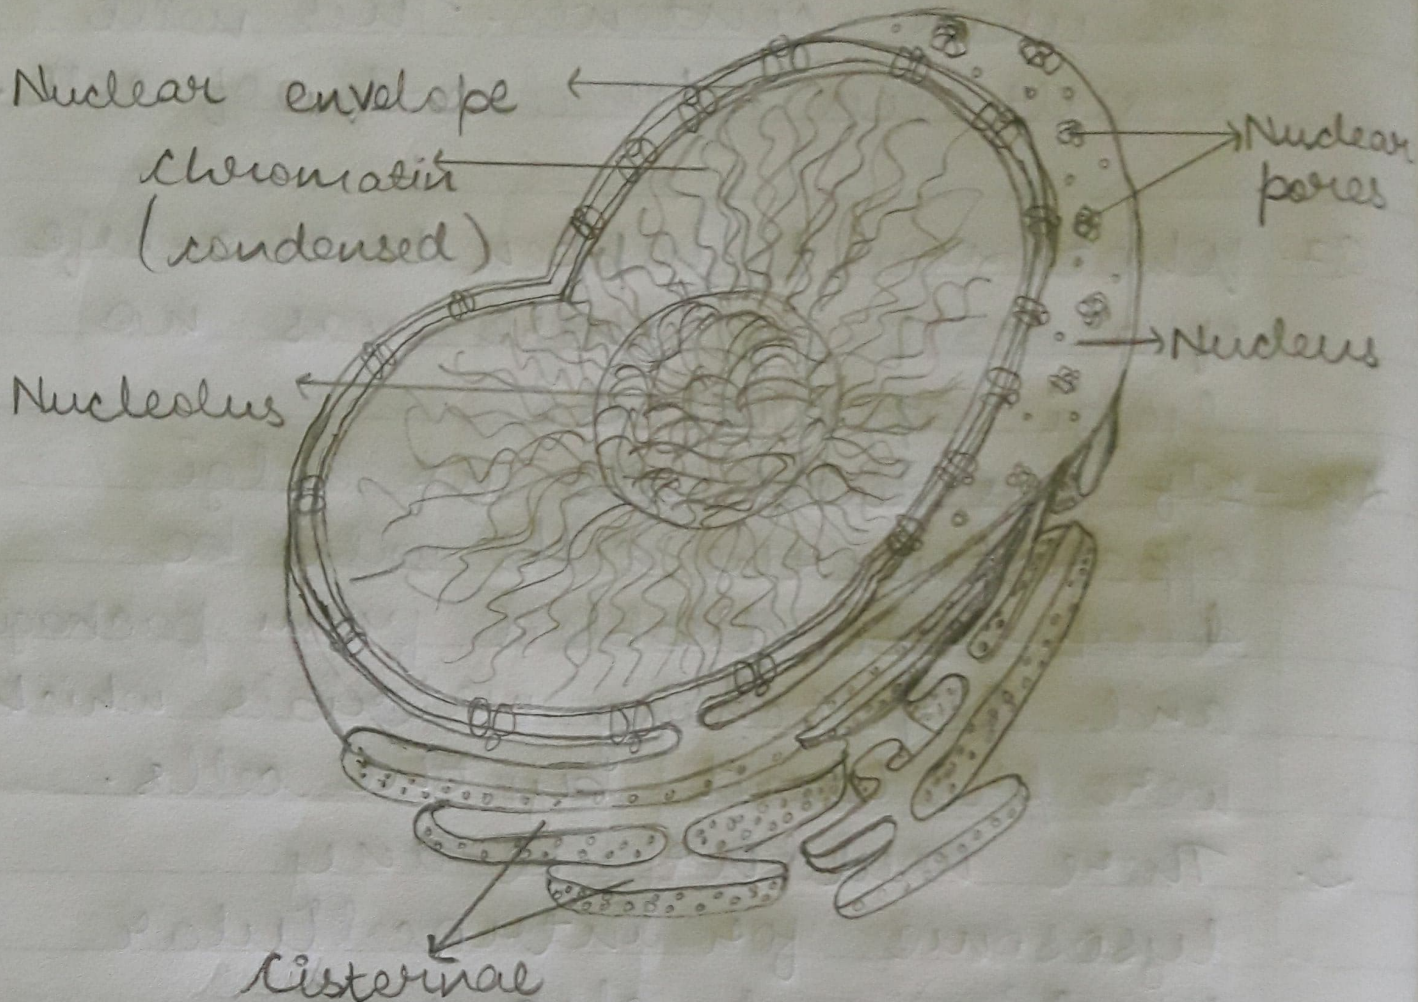 Nuclear envelope
Chromatin
(condensed)
Nucleolus
Nuclear
pores
Nucleus
Cisternae